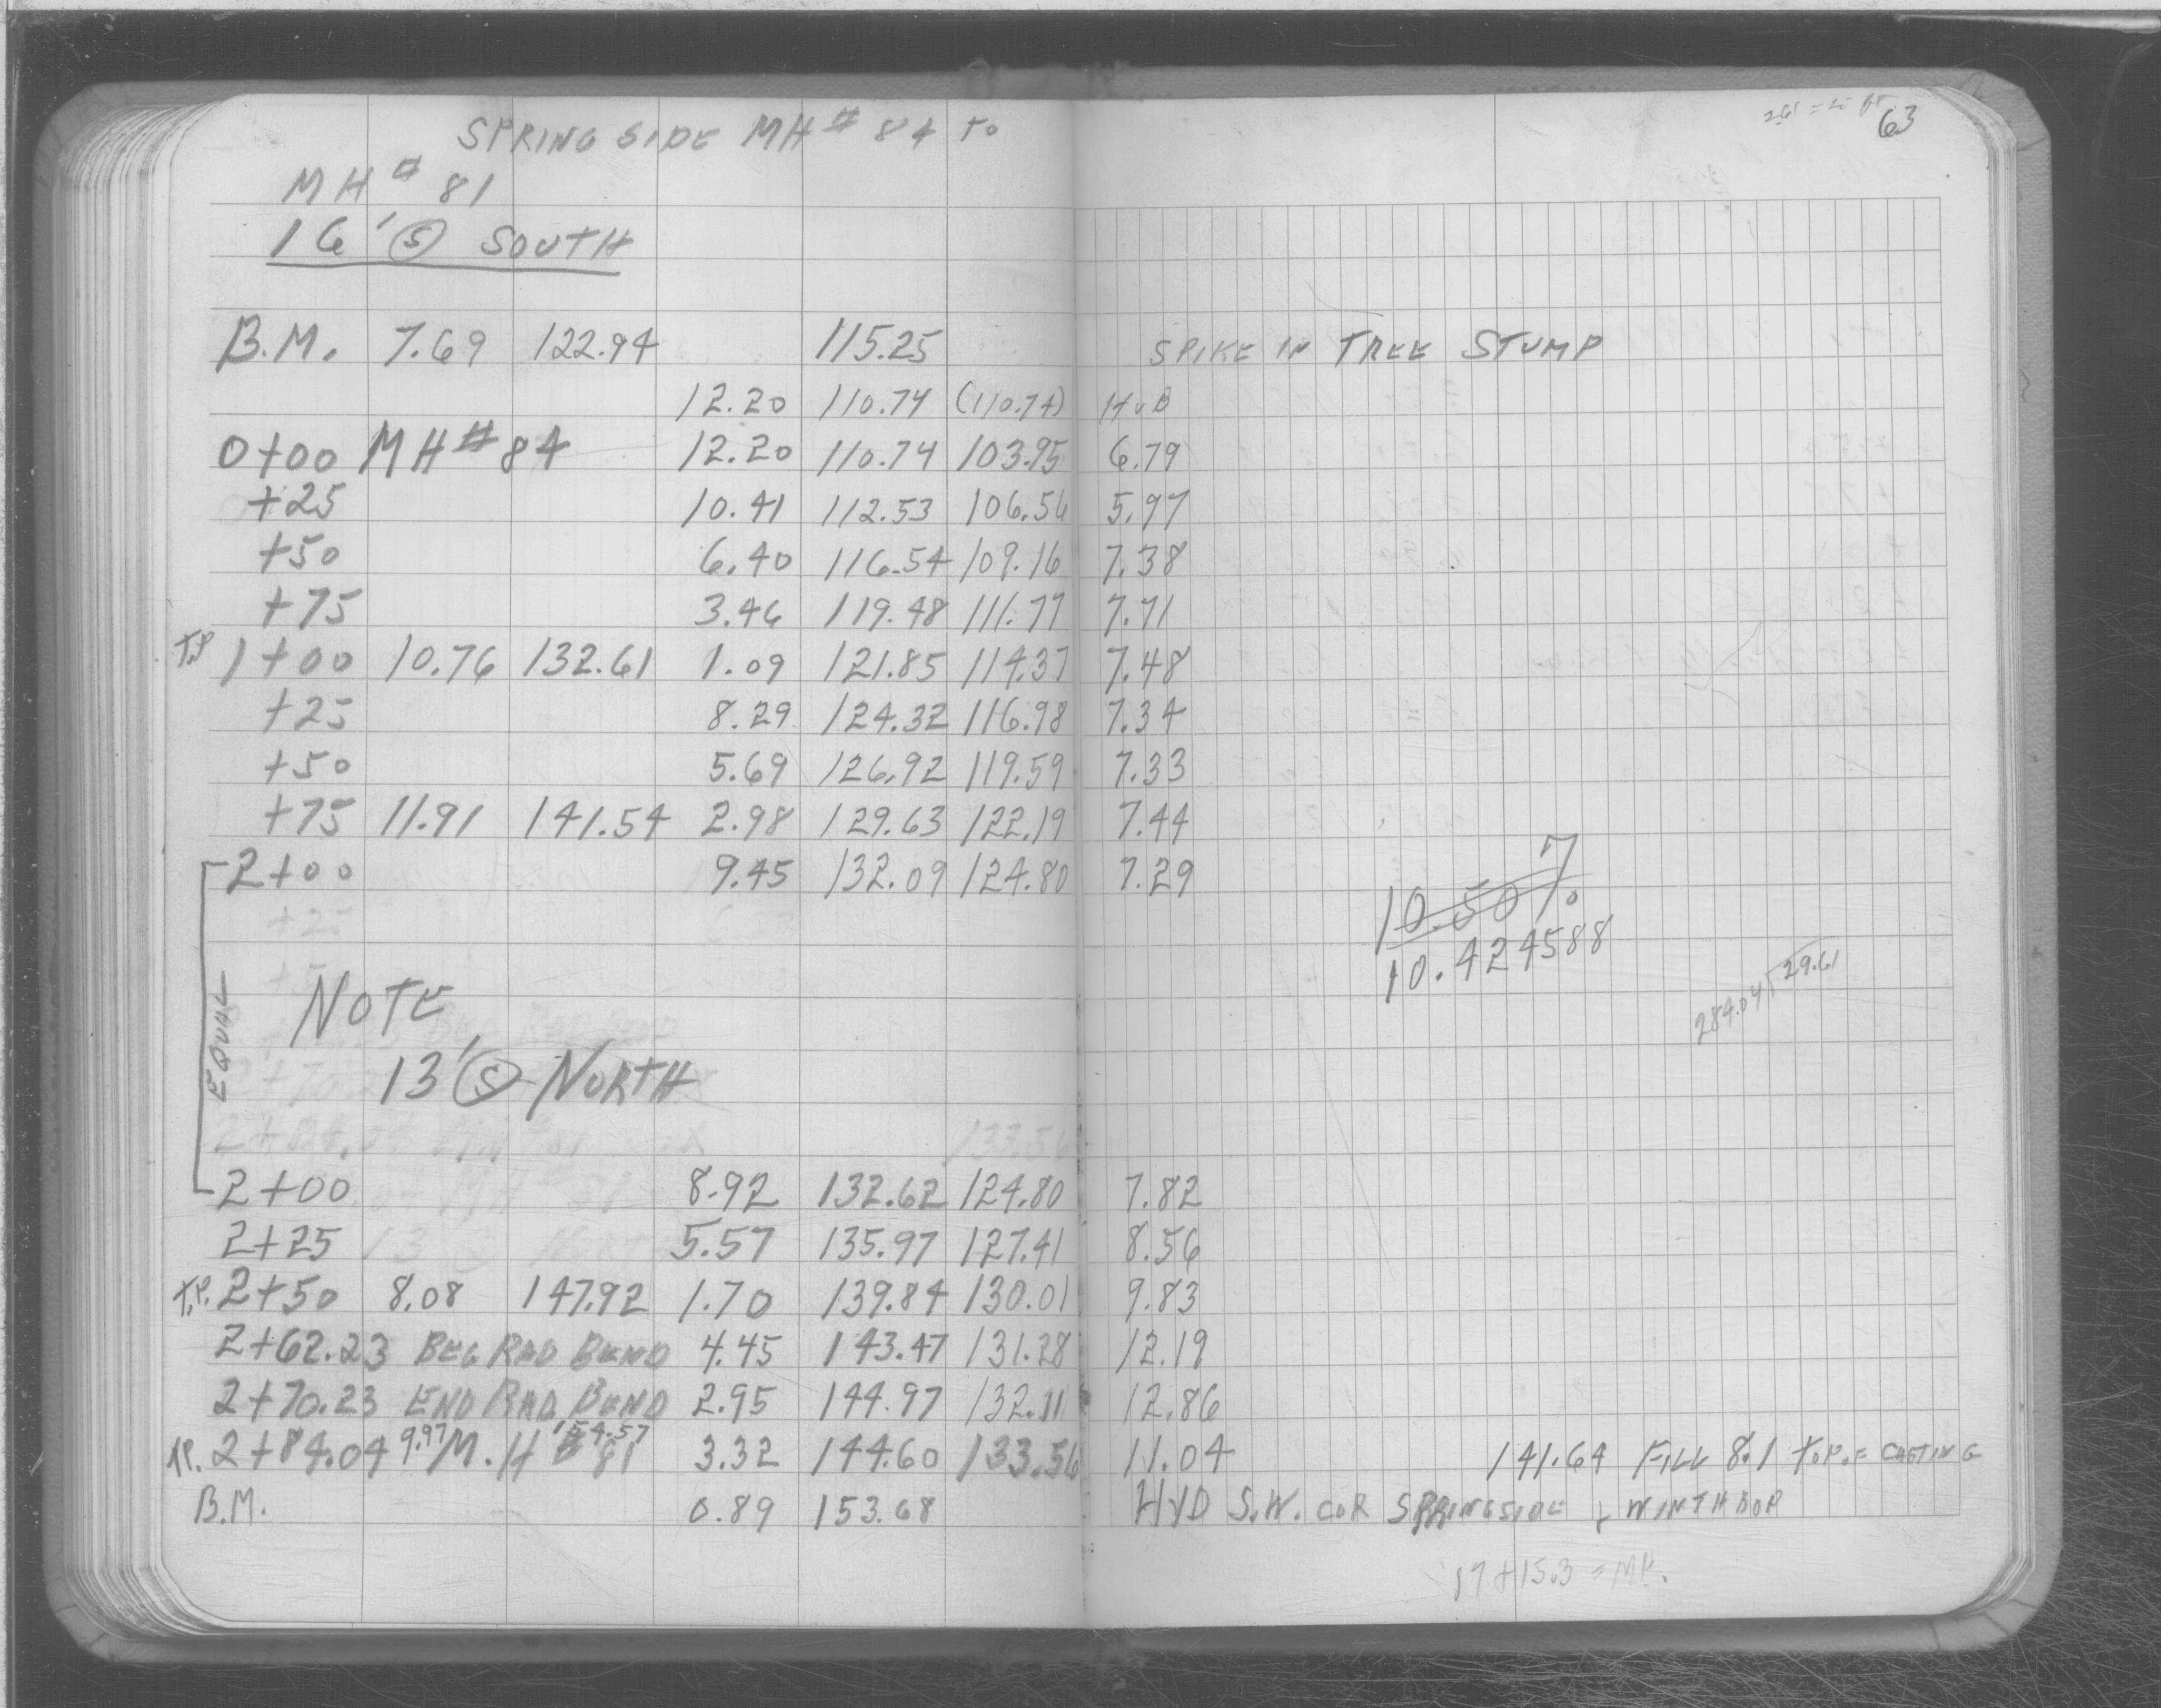 63
SPRING SIDE MH # 84 TO
MH # 81
16' Ⓢ SOUTH
B.M. 7.69 122.94 115.25 SPIKE IN TREE STUMP
12.20 110.74 (110.74) HUB
0+00 MH # 84 12.20 110.74 103.95 6.79
+25 10.41 112.53 106.56 5.97
+50 6.40 116.54 109.16 7.38
+75 3.46 119.48 111.77 7.71
T.P 1+00 10.76 132.61 1.09 121.85 114.37 7.48
+25 8.29 124.32 116.98 7.34
+50 5.69 126.92 119.59 7.33
+75 11.91 141.54 2.98 129.63 122.19 7.44
2+00 9.45 132.09 124.80 7.29
10.50 %
10.424588
284.04 29.61
EQUAL
NOTE
13' Ⓢ NORTH
2+00 8.92 132.62 124.80 7.82
2+25 5.57 135.97 127.41 8.56
T.P. 2+50 8.08 147.92 1.70 139.84 130.01 9.83
2+62.23 BEG RAD BEND 4.45 143.47 131.28 12.19
2+70.23 END RAD BEND 2.95 144.97 132.11 12.86
T.P. 2+84.04 9.97 M.H # 81 154.57 3.32 144.60 133.56 11.04 141.64 FILL 8.1 TOP OF CASTING
B.M. 0.89 153.68 HYD S.W. COR SPRINGSIDE + WINTHROP
17+15.3 = MH.